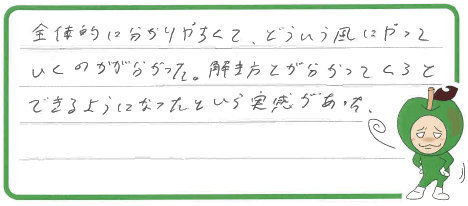 全体的に分かりやすくて、どういう風にやって
いくのかが分かった。解き方とが分かってくると
できるようになったという実感があった。